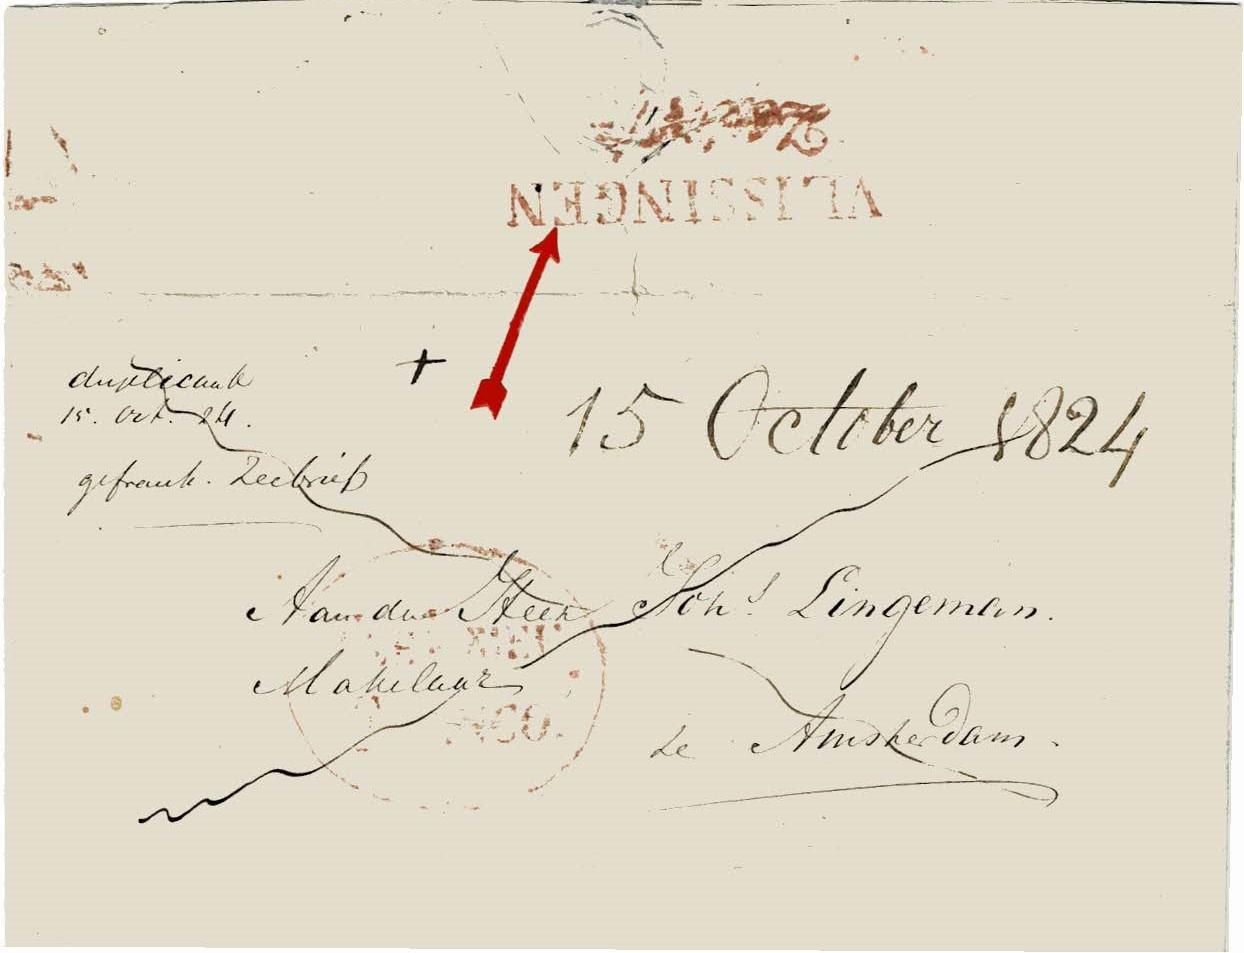 Zeebrief
VLISSINGEN
duplicaat
15. Oct. 24.
15 October 1824
gefrank. Zeebrief
Aan den Heer Johs. Lingeman.
Makelaar
te Amsterdam.